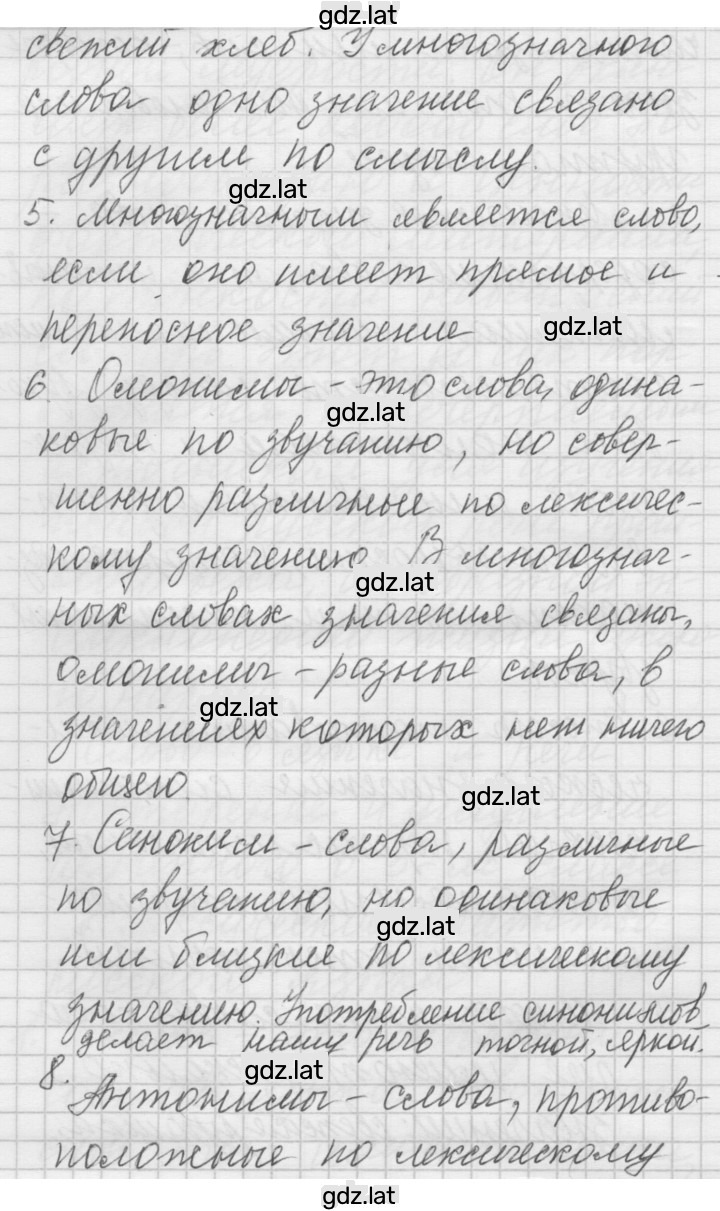 gdz.lat
свежий хлеб. У многозначного
слова одно значение связано
с другим по смыслу.
gdz.lat
5. Многозначным является слово,
если оно имеет прямое и
переносное значение
gdz.lat
6. Омонимы - это слова, одина-
gdz.lat
ковые по звучанию, но совер-
шенно различные по лексичес-
кому значению. В многознач-
gdz.lat
ных словах значения связаны,
омонимы - разные слова, в
gdz.lat
значениях которых нет ничего
общего.
gdz.lat
7. Синоним - слова, различные
по звучанию, но одинаковые
gdz.lat
или близкие по лексическому
значению. Употребление синонимов
делает нашу речь точной, яркой.
gdz.lat
8. Антонимы - слова, противо-
положные по лексическому
gdz.lat